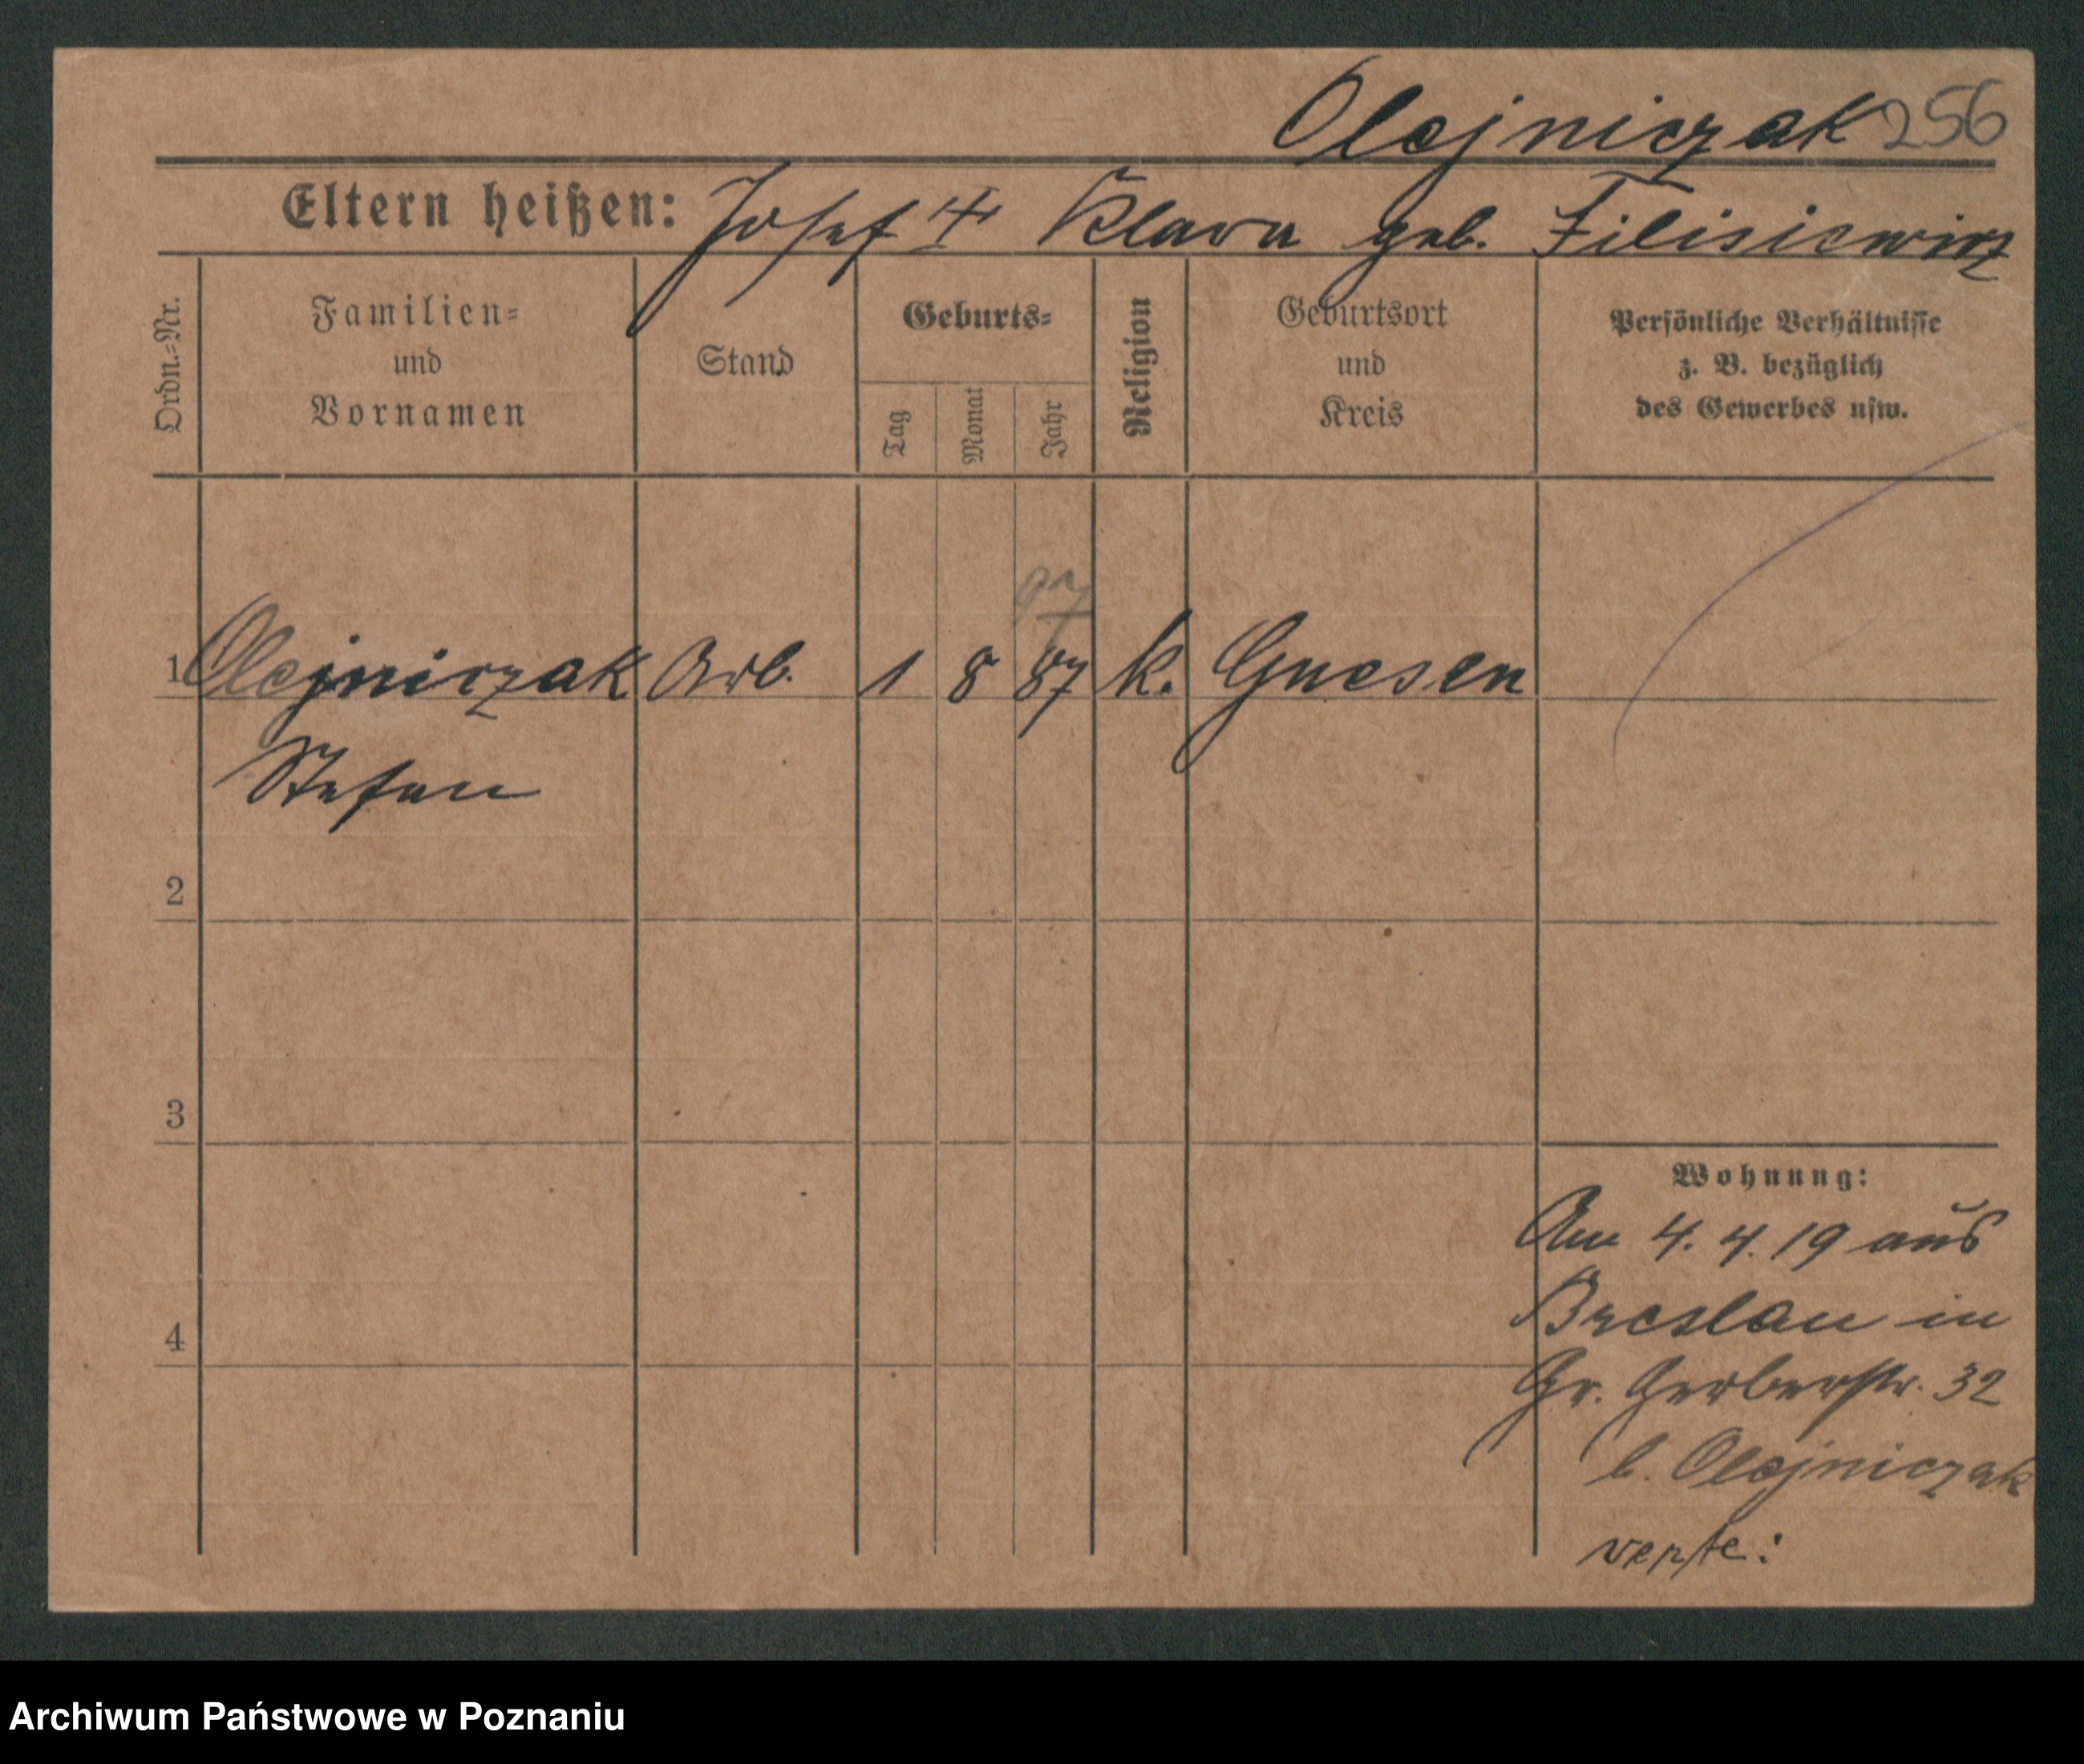 Olejniczak 256
Eltern heißen: Josef ++ Klara geb. Filisiewicz
Ordn.-Nr.
Familien-
und
Vornamen
Stand
Geburts-
Tag
Monat
Jahr
Religion
Geburtsort
und
Kreis
Persönliche Verhältnisse
z. B. bezüglich
des Gewerbes usw.
1 Olejniczak Arb. 1 8 87 k. Gnesen
Stefan
2
3
4
Wohnung:
Am 4. 4. 19 aus
Breslau in
Gr. Gerberstr. 32
b. Olejniczak
verte:
Archiwum Państwowe w Poznaniu